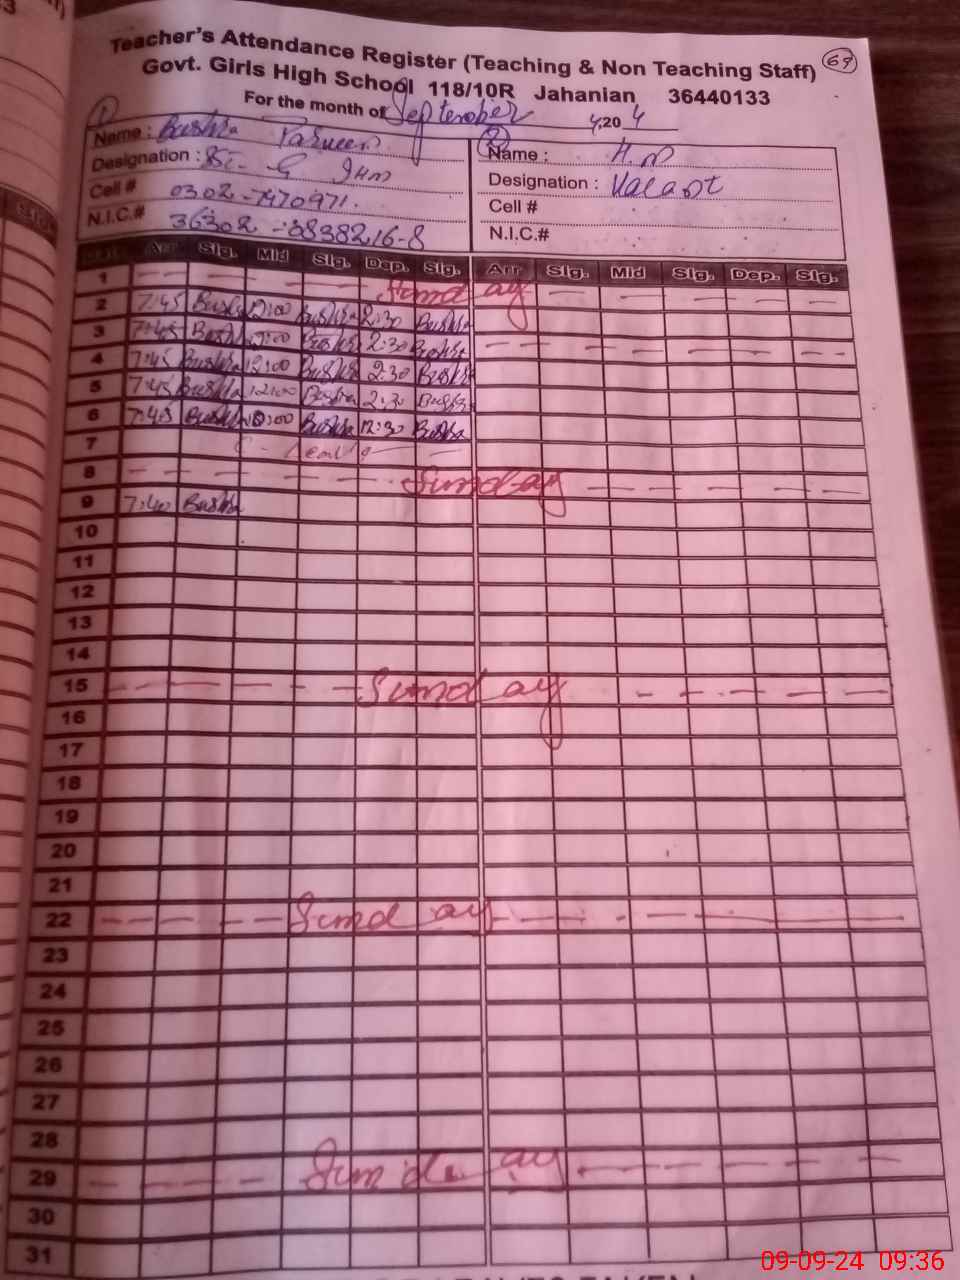 69
Teacher's Attendance Register (Teaching & Non Teaching Staff)
Govt. Girls High School 118/10R Jahanian 36440133
For the month of September 20 4
1
2
Name : Bushra Parveen
Name : H.M
Designation :
Designation : Vacant
Cell # 0302-7470971.
Cell #
N.I.C.# 36302-8838216-8
N.I.C.#
Arr Sig. Mid Sig. Dep. Sig. Arr Sig. Mid Sig. Dep. Sig.
1 Sunday
2 7:45 Bushra 12:00 Bushra 2:30 Bushra
3 7:45 Bushra 12:00 Bushra 2:30 Bushra
4 7:45 Bushra 12:00 Bushra 2:30 Bushra
5 7:45 Bushra 12:00 Bushra 2:30 Bushra
6 7:45 Bushra Bushra 12:30 Bushra
7 C - Leave
8 Sunday
9 7:40 Bushra
10
11
12
13
14
15 Sunday
16
17
18
19
20
21
22 Sunday
23
24
25
26
27
28
29 Sunday
30
31
09-09-24 09:36